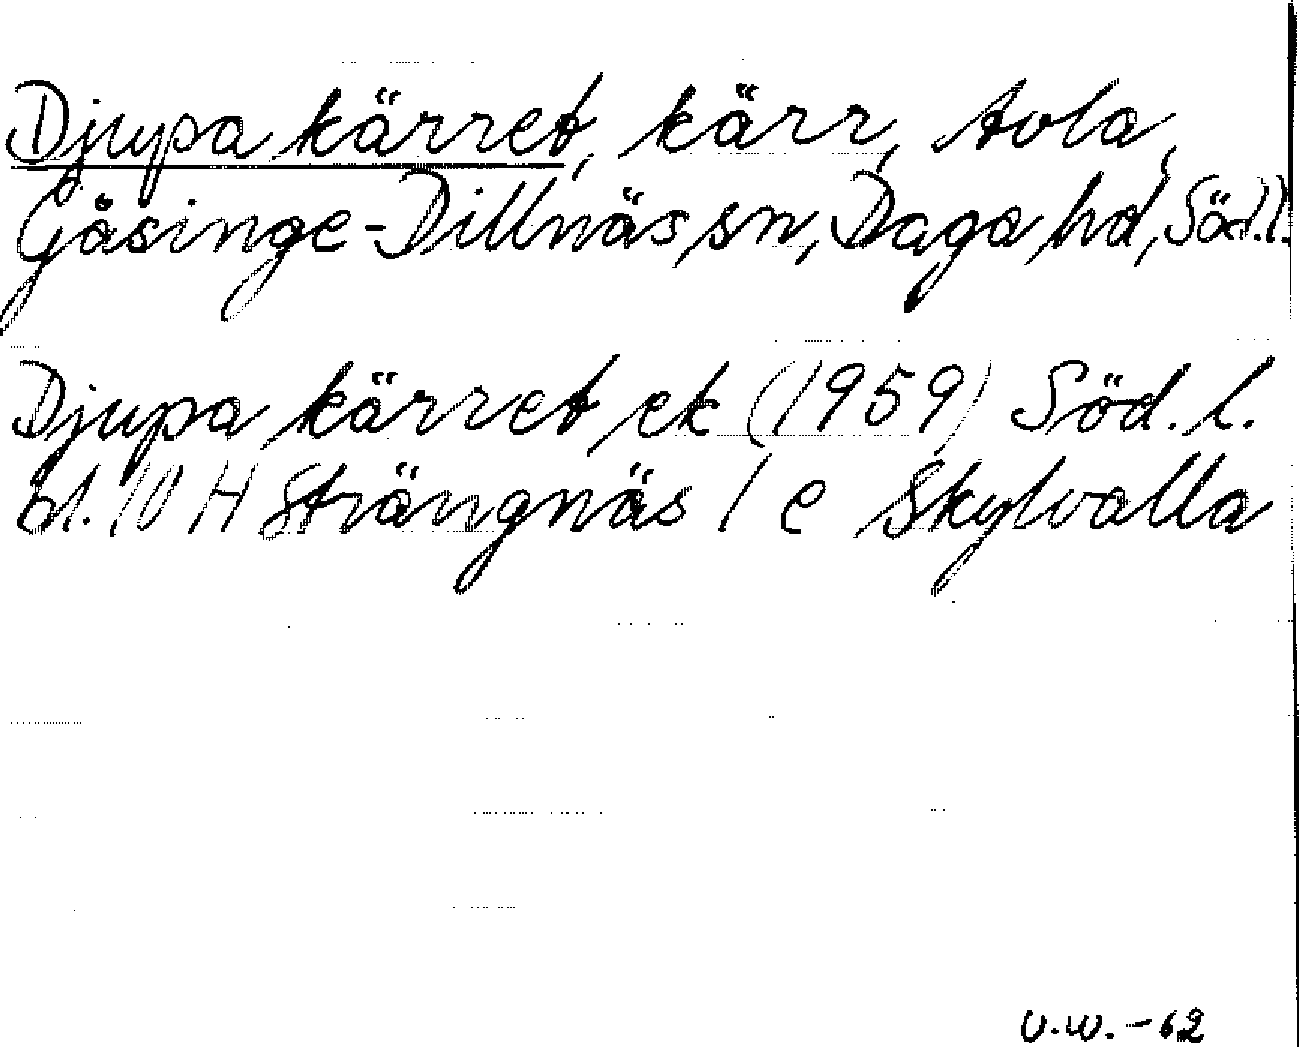 Djupa kärret, kärr, Avla,
Gåsinge-Dillnäs sn, Daga hd, Söd.l.
Djupa kärret ek (1959) Söd. l.
bl. 10 H Strängnäs 1 e Skylvalla
U.W. - 62